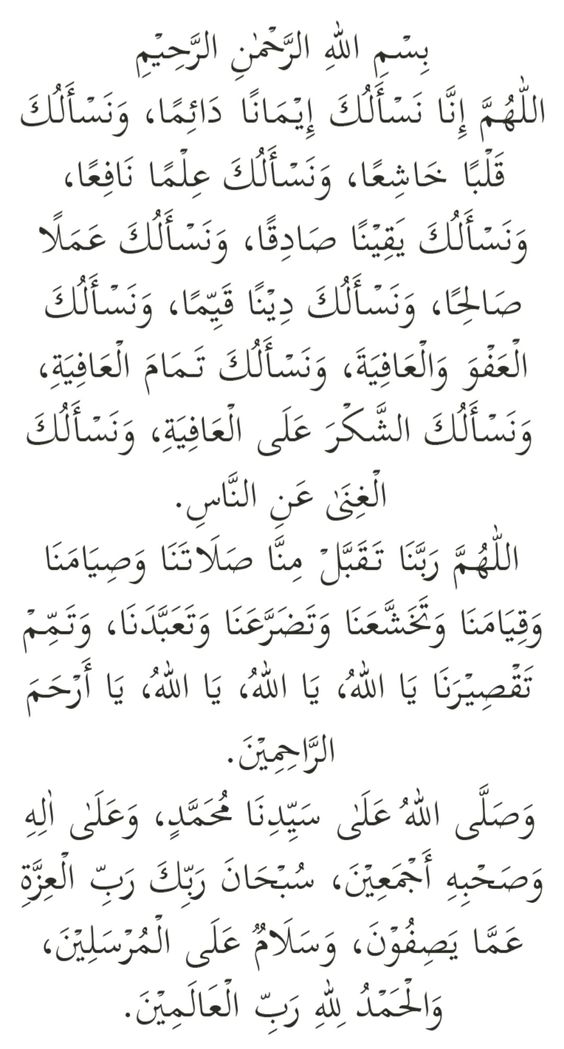 بِسْمِ اللهِ الرَّحْمٰنِ الرَّحِيْمِ
اللّٰهُمَّ إِنَّا نَسْأَلُكَ إِيْمَانًا دَائِمًا، وَنَسْأَلُكَ
قَلْبًا خَاشِعًا، وَنَسْأَلُكَ عِلْمًا نَافِعًا،
وَنَسْأَلُكَ يَقِيْنًا صَادِقًا، وَنَسْأَلُكَ عَمَلًا
صَالِحًا، وَنَسْأَلُكَ دِيْنًا قَيِّمًا، وَنَسْأَلُكَ
الْعَفْوَ وَالْعَافِيَةَ، وَنَسْأَلُكَ تَمَامَ الْعَافِيَةِ،
وَنَسْأَلُكَ الشَّكْرَ عَلَى الْعَافِيَةِ، وَنَسْأَلُكَ
الْغِنَىٰ عَنِ النَّاسِ.
اللّٰهُمَّ رَبَّنَا تَقَبَّلْ مِنَّا صَلَاتَنَا وَصِيَامَنَا
وَقِيَامَنَا وَتَخَشَّعَنَا وَتَضَرَّعَنَا وَتَعَبَّدَنَا، وَتَمِّمْ
تَقْصِيْرَنَا يَا اللهُ، يَا اللهُ، يَا اللهُ، يَا أَرْحَمَ
الرَّاحِمِيْنَ.
وَصَلَّى اللهُ عَلَىٰ سَيِّدِنَا مُحَمَّدٍ، وَعَلَىٰ اٰلِهِ
وَصَحْبِهِ أَجْمَعِيْنَ، سُبْحَانَ رَبِّكَ رَبِّ الْعِزَّةِ
عَمَّا يَصِفُوْنَ، وَسَلَامٌ عَلَى الْمُرْسَلِيْنَ،
وَالْحَمْدُ لِلّٰهِ رَبِّ الْعَالَمِيْنَ.